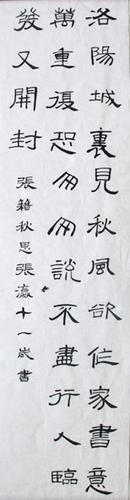 洛陽城裏見秋風欲作家書意
萬重復恐匆匆說不盡行人臨
發又開封
張籍秋思張瀛十一歲書